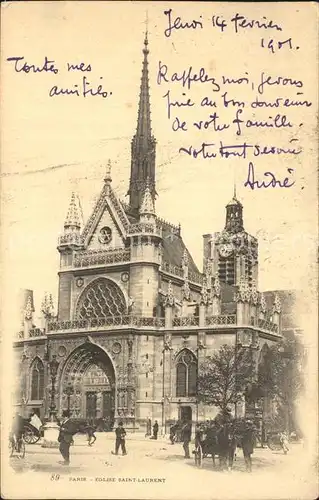 Jeudi 14 février
1901.
Toutes mes
amitiés.
Rappelez moi, je vous
prie au bon souvenir
de votre famille.
Votre tout dévoué
André
89 PARIS - ÉGLISE SAINT-LAURENT